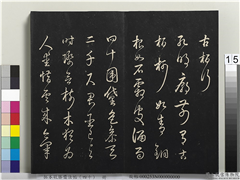 古柏行
孔明廟前有老
柏柯如青銅
根如石霜皮溜雨
四十圍黛色參天
二千尺君臣已與
時際會樹木猶為
人愛惜雲來氣
15